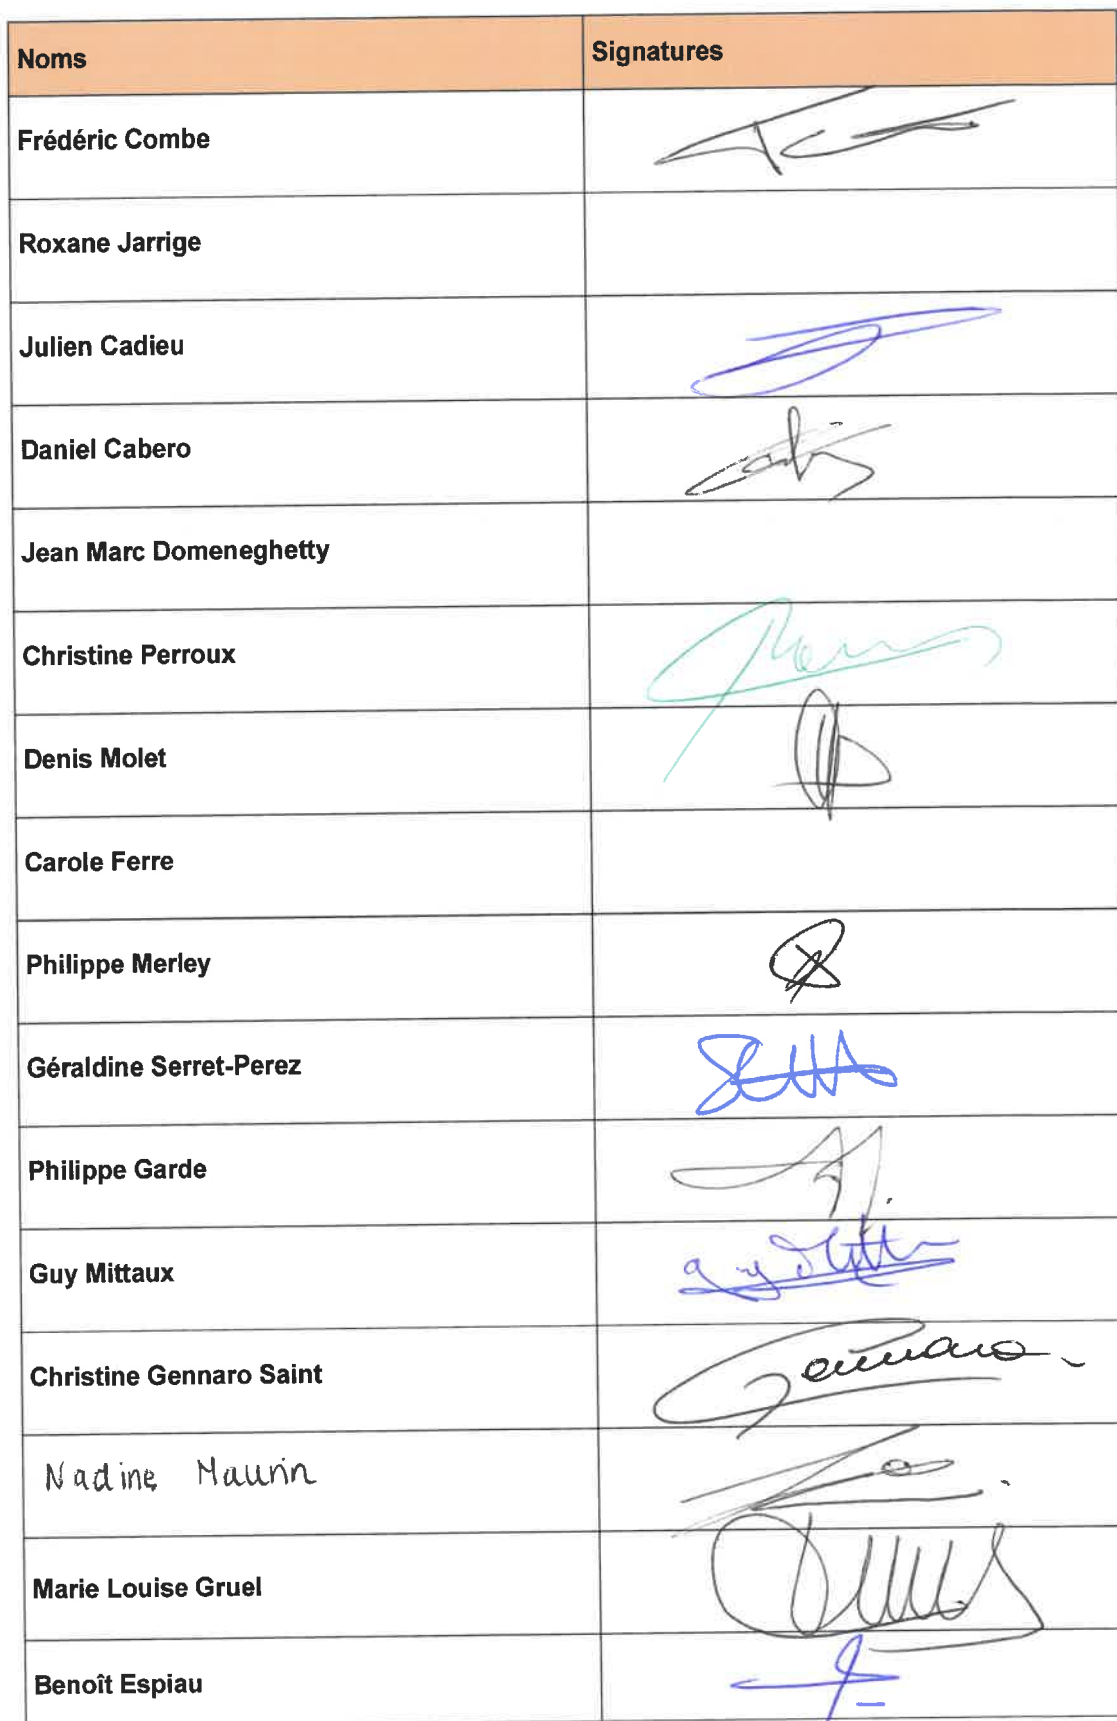 Noms Signatures
Frédéric Combe
Roxane Jarrige
Julien Cadieu
Daniel Cabero
Jean Marc Domeneghetty
Christine Perroux
Denis Molet
Carole Ferre
Philippe Merley
Géraldine Serret-Perez
Philippe Garde
Guy Mittaux
Christine Gennaro Saint Gennaro
Nadine Maurin
Marie Louise Gruel
Benoît Espiau